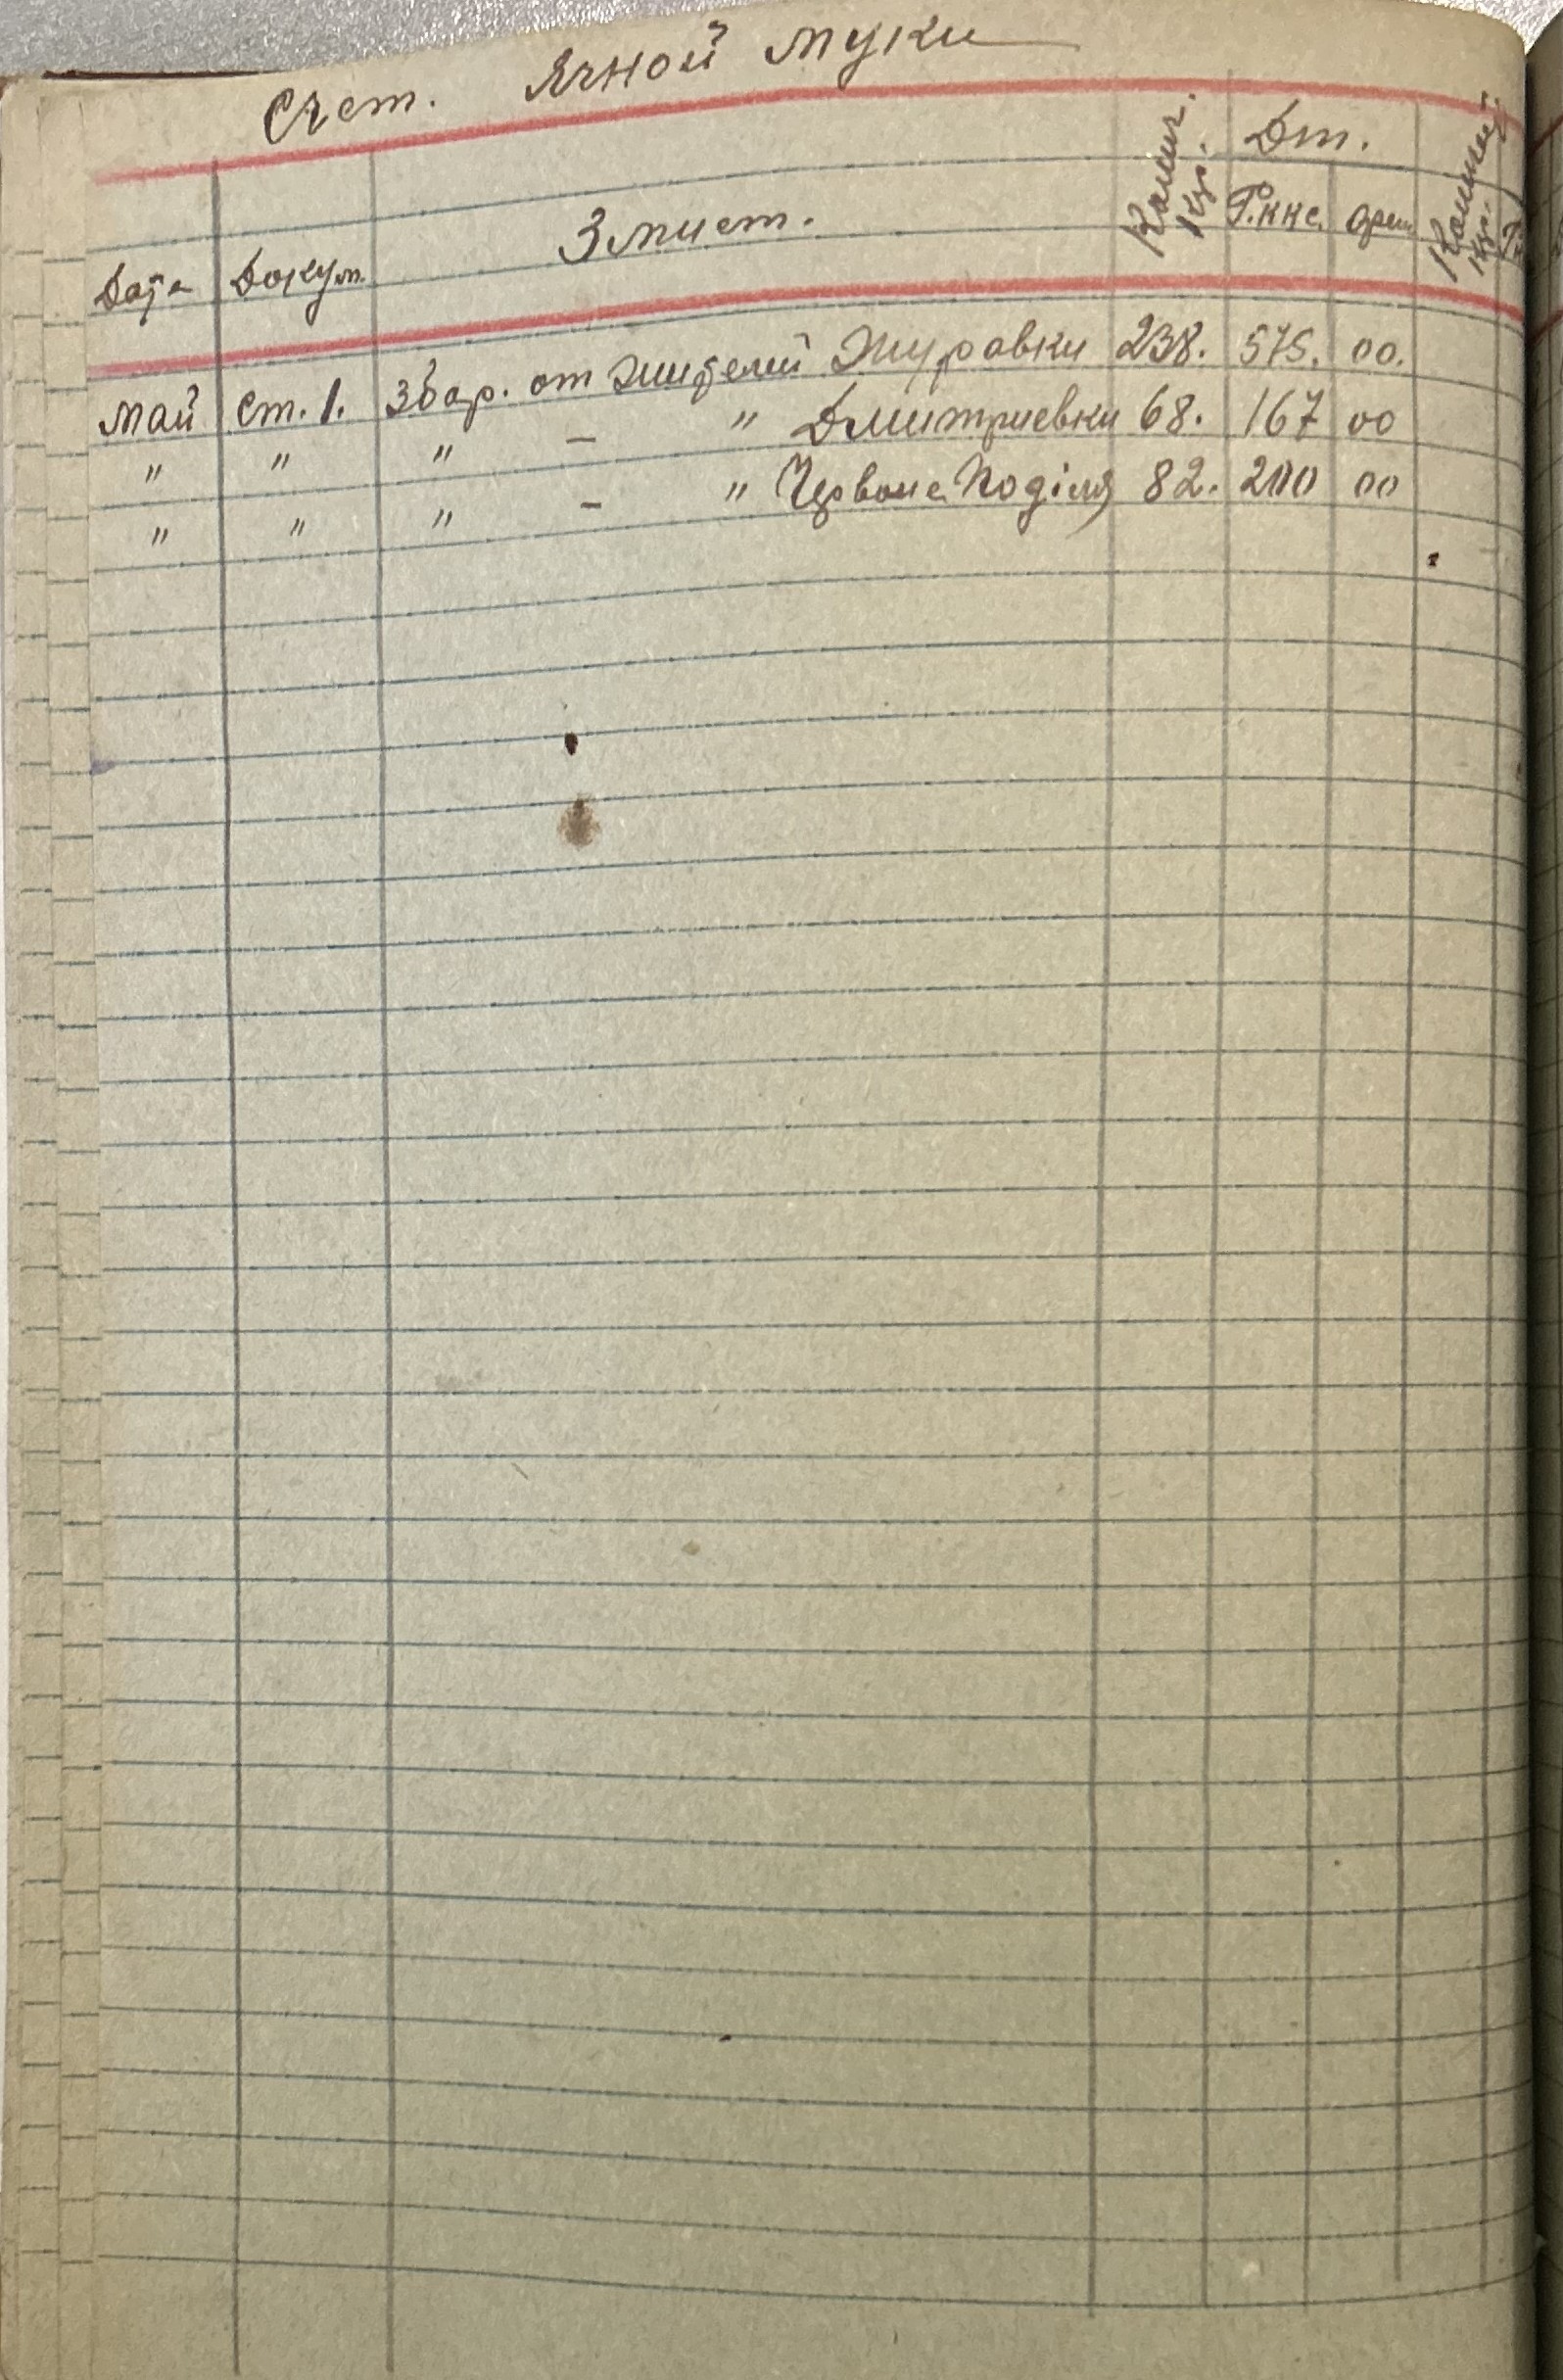 Счет. Ячной муки
Дата Докум. Змист. Колич. кгр. Дт. Р.ккс.
май ст. 1. Збор. от жителей Журавки 238. 575. 00.
" " " — " Дмитриевки 68. 167 00
" " " — " Червоне Поділля 82. 200 00